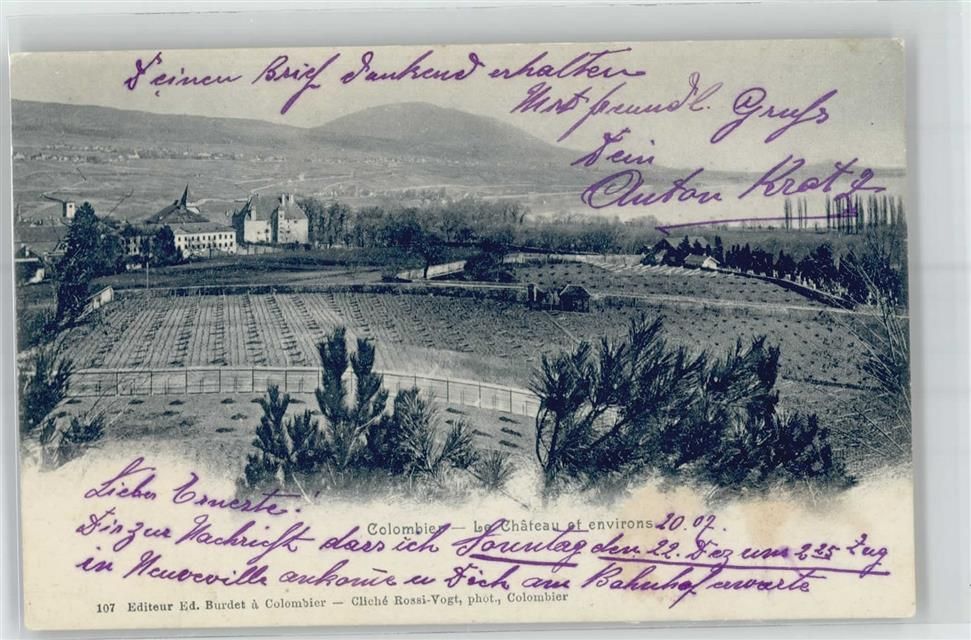 Deinen Brief dankend erhalten
Mit freundl. Gruss
Dein
Anton Kratz
Lieber Erneste!
Colombier — Le Château et environs
20.07.
Dir zur Nachricht dass ich Sonntag den 22. Dez um 2 25 Zug
in Neuveville ankome u Dich am Bahnhof erwarte
107 Editeur Ed. Burdet à Colombier — Cliché Rossi-Vogt, phot., Colombier